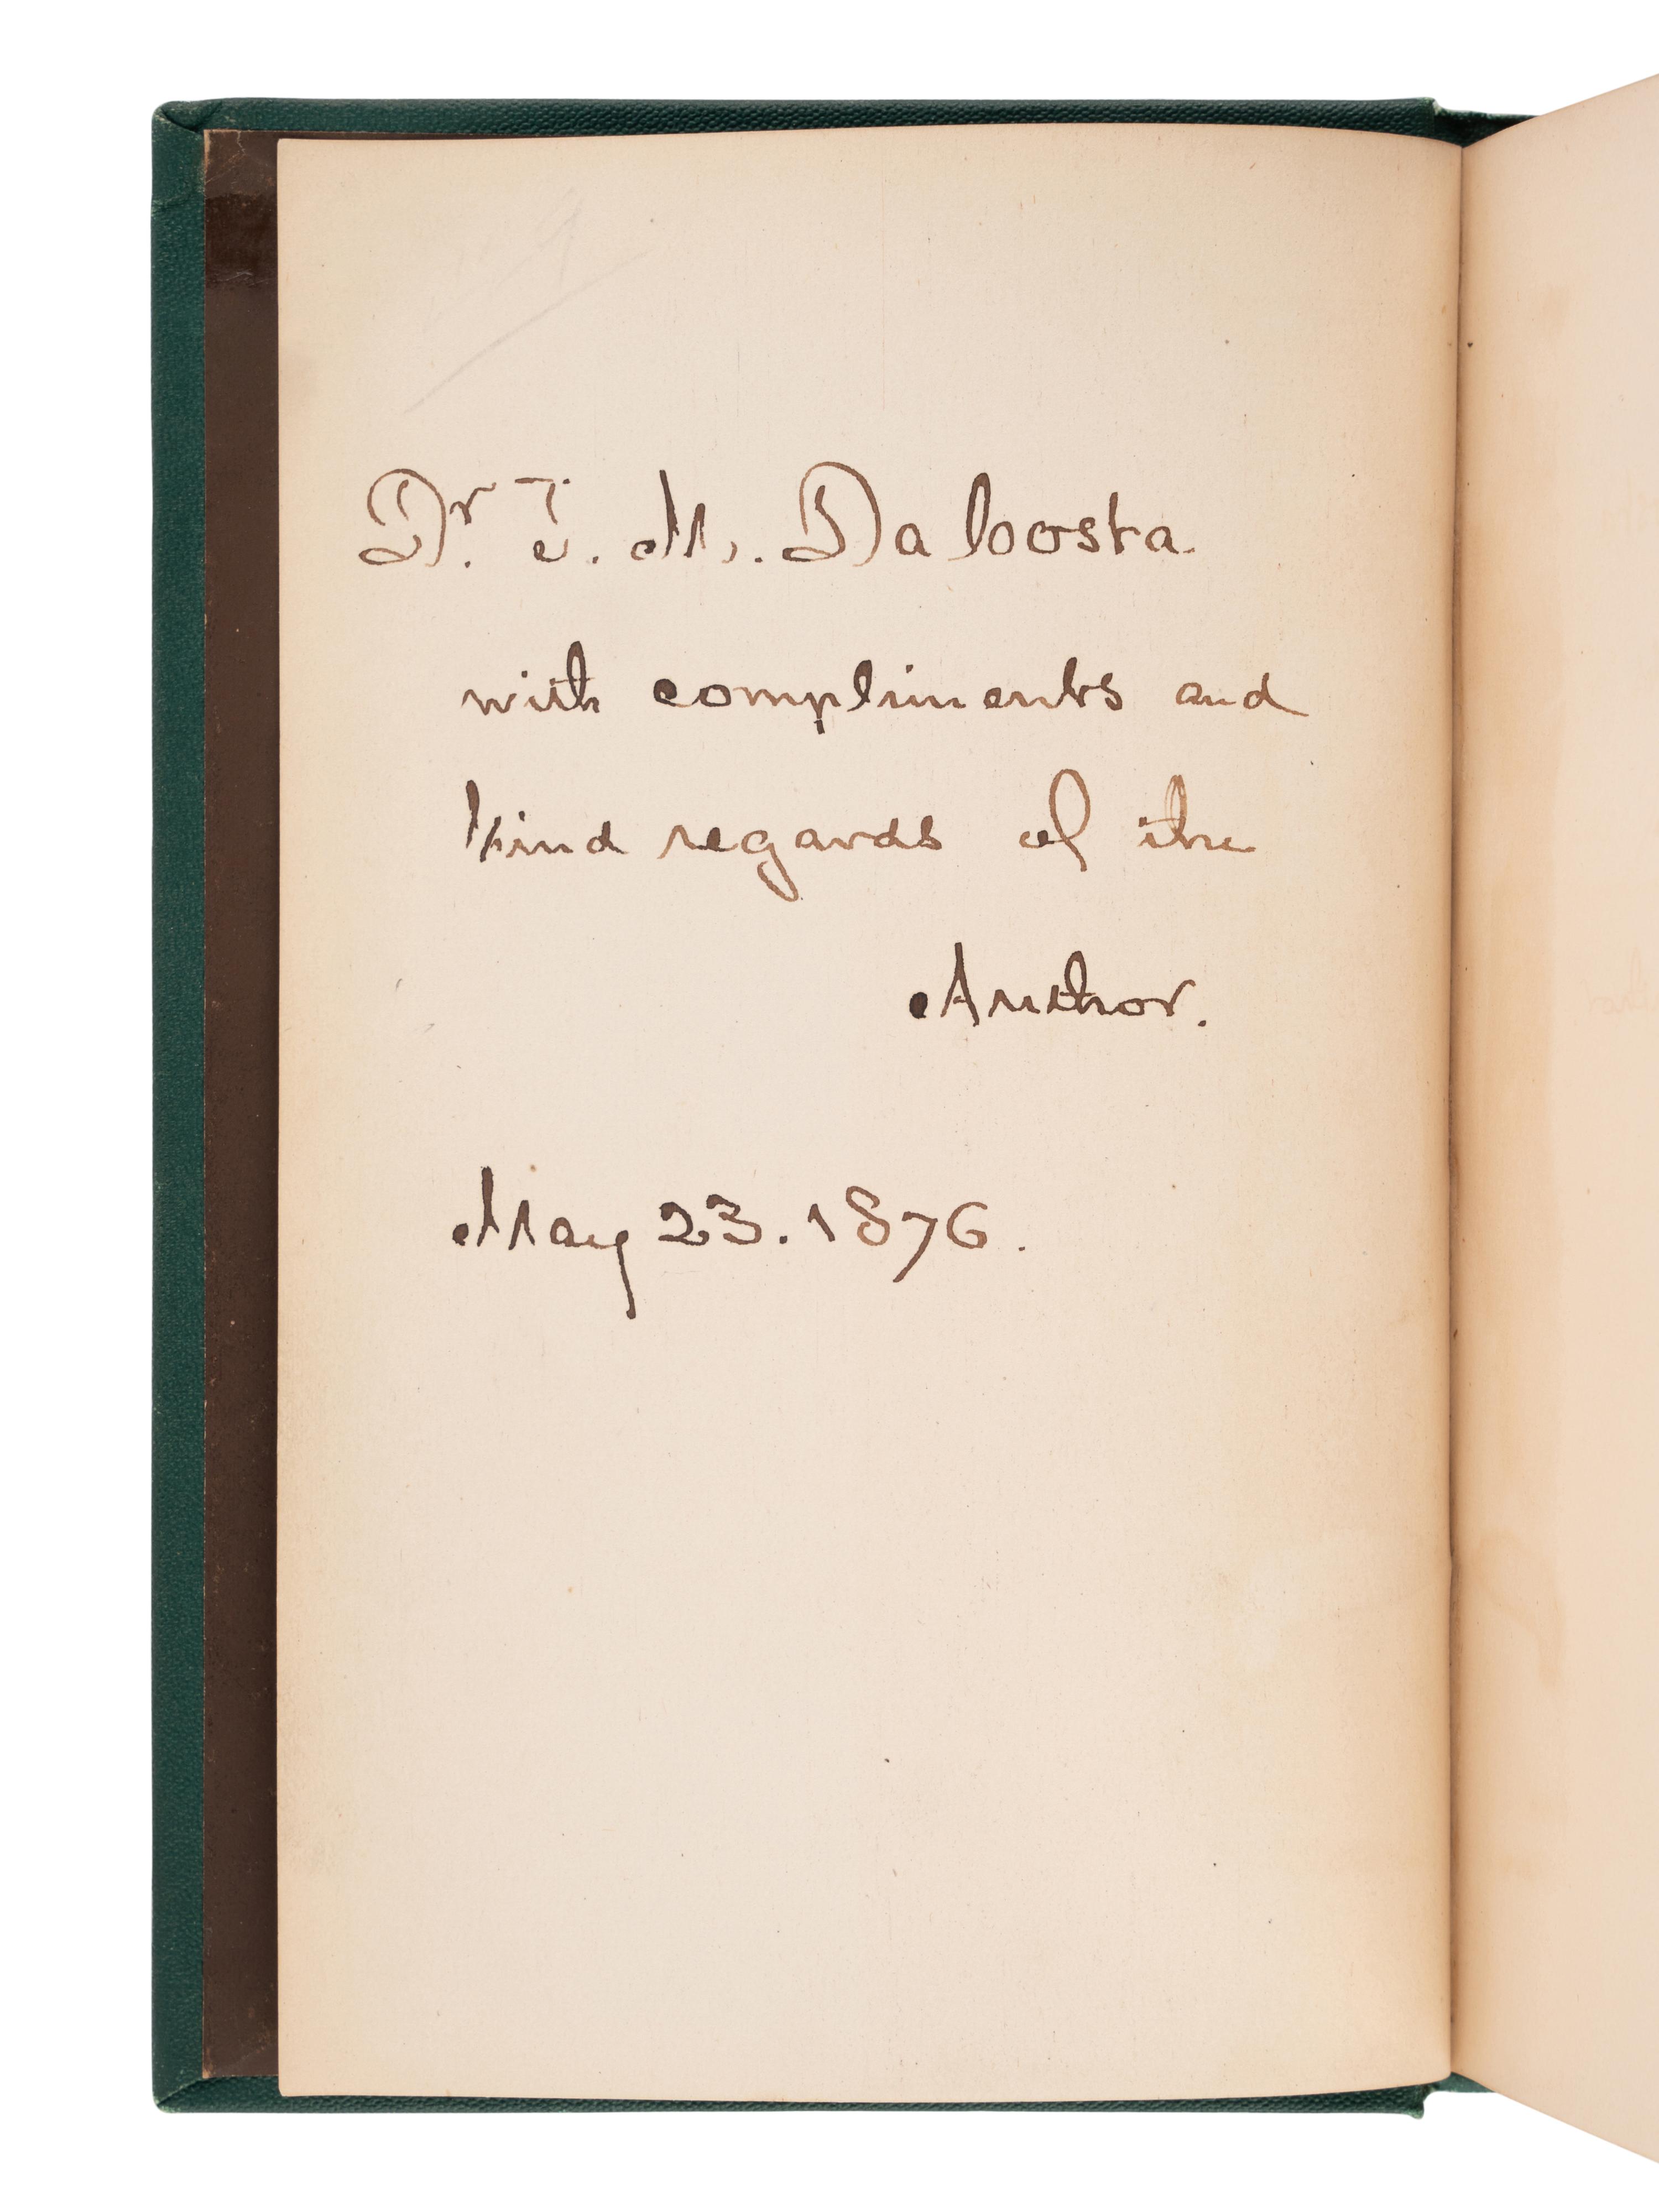 Dr. J. M. Da Costa
with compliments and
kind regards of the
Author.
May 23. 1876.